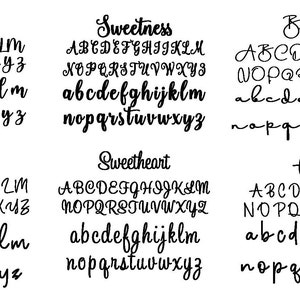 LM
YZ
lm
yz
Sweetness
ABCDEFGHIJKLM
NOPQRSTUVWXYZ
abcdefghijklm
nopqrstuvwxyz
B
ABCD
NOPQ
abcd
nopqrs
LM
XYZ
lm
yz
Sweetheart
ABCDEFGHIJKLM
NOPQRSTUVWXYZ
abcdefghijklm
nopqrstuvwxyz
ABCD
NOPQ
abcd
nopq